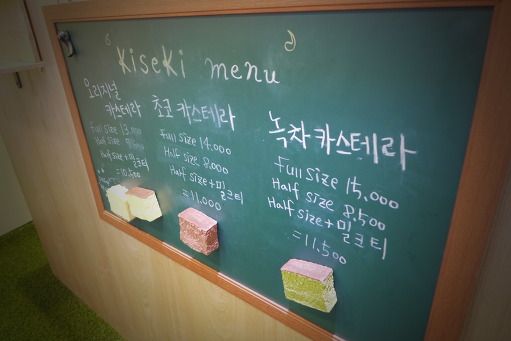 Kiseki menu
오리지널
카스테라
Full size 13.000
Half size
Half size + 밀크티
= 10.500
초코 카스테라
Full size 14.000
Half size 8.000
Half size + 밀
크티
= 11.000
녹차 카스테라
Full size 15.000
Half size 8.500
Half size + 밀
크티
= 11.500